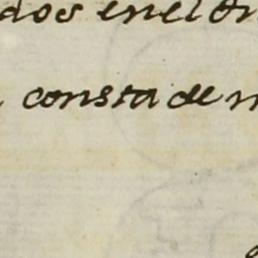 dos en el
consta de